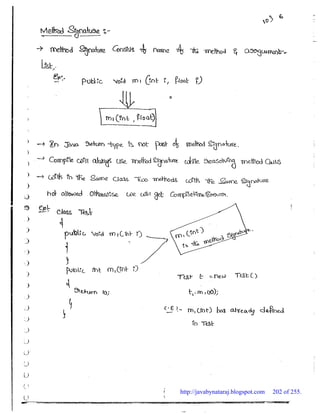 10) 6
Method Signature :-
→ method Signature Consist of name of the method & arguments-
List.
Ex:- public void m1 (int i, float f)
m1(int, float)
→ In Java Return-type is not part of method Signature.
→ Compiler will always use method Signature while Resolving method calls
→ with in the Same Class Two methods with the Same Signature
not allowed otherwise we will get CompileTimeError.
Ex:- class Test
{
public void m1(int i)
{
}
m1(int)
is the method Signature
public int m1(int i)
{
return 10;
}
}
Test t = new Test()
t.m1(10);
C.E :- m1(int) has already defined
in Test
http://javabynataraj.blogspot.com 202 of 255.